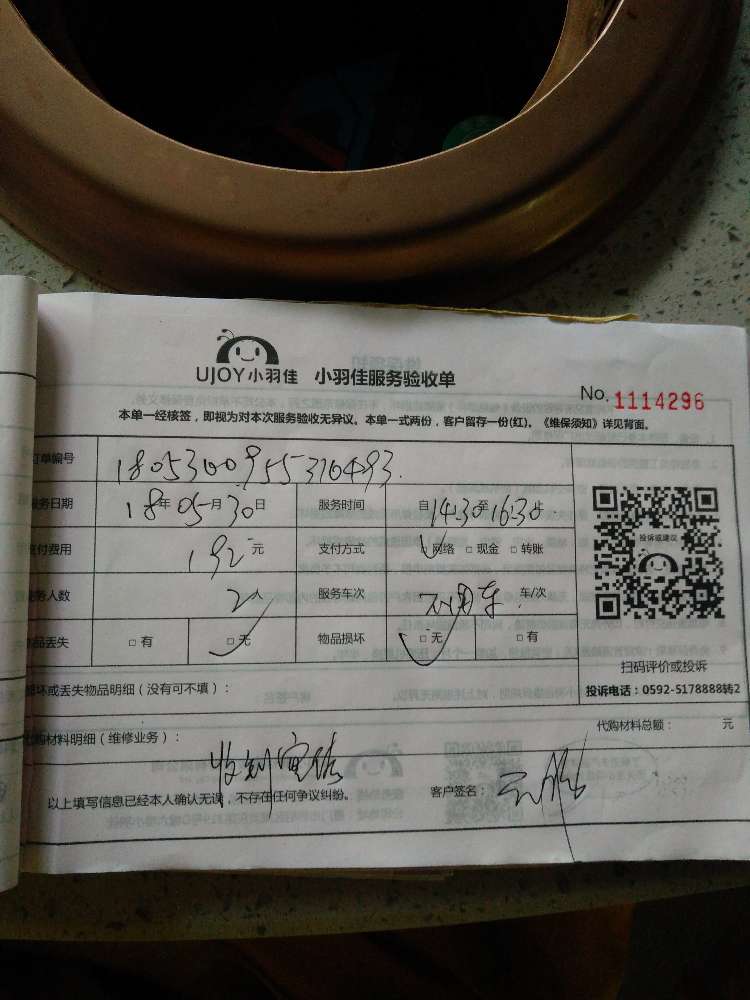 UJOY小羽佳 小羽佳服务验收单
No. 1114296
本单一经核签，即视为对本次服务验收无异议。本单一式两份，客户留存一份(红)。《维保须知》详见背面。
订单编号 1805300955316493
服务日期 18年05月30日 服务时间 自14:30至16:30止
支付费用 192元 支付方式 □网络 □现金 □转账
服务人数 2人 服务车次 不用车 车/次
物品丢失 □有 □无 物品损坏 □无 □有
投诉或建议
扫码评价或投诉
损坏或丢失物品明细（没有可不填）：
投诉电话：0592-5178888转2
代购材料明细（维修业务）：
代购材料总额： 元
以上填写信息已经本人确认无误，不存在任何争议纠纷。 客户签名：